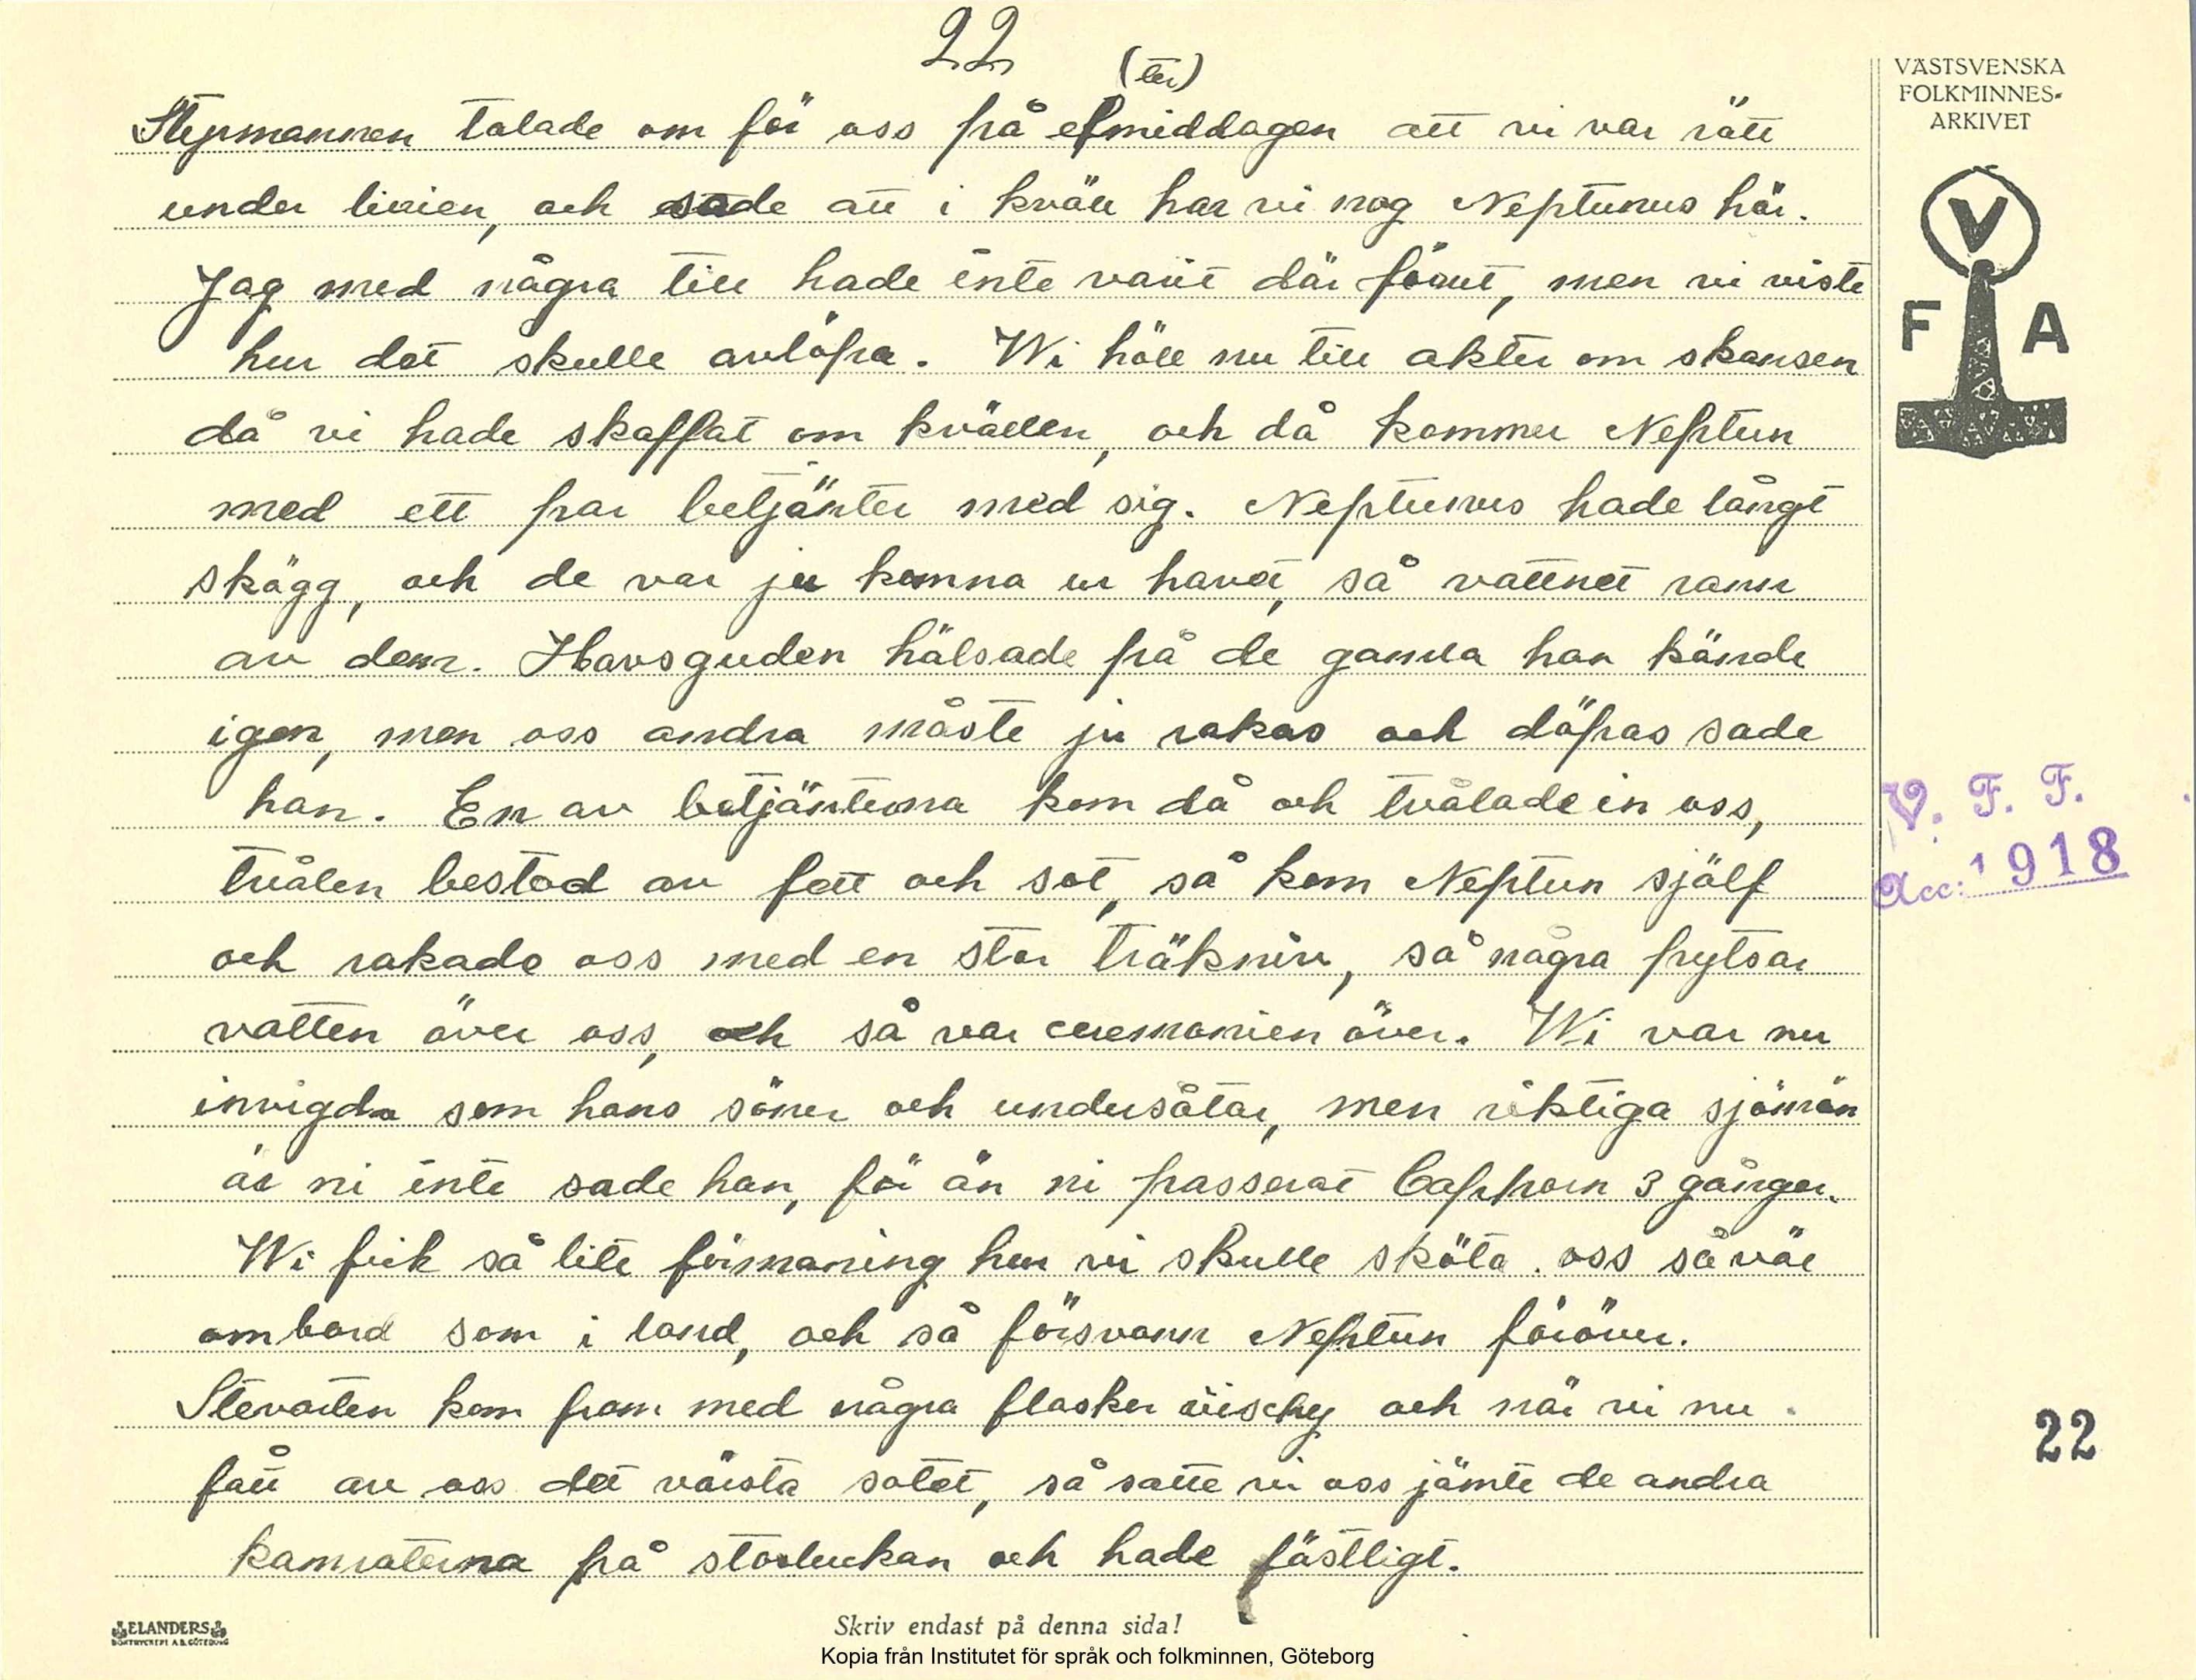 22
(ter)
Styrmannen talade om för oss på efmiddagen att vi var rätt
under linien, och sade att i kväll har vi nog Neptunus här.
Jag med några till hade inte varit där förut, men vi viste
hur det skulle avlöpa. Wi höll nu till akter om skansen
då vi hade skaffat om kvällen, och då kommer Neptun
med ett par betjänter med sig. Neptunus hade långt
skägg, och de var ju komna ur havet, så vattnet rann
av dem. Havsguden hälsade på de gamla han kände
igen, men oss andra måste ju rakas och döpas sade
han. En av betjänterna kom då och tvålade in oss,
tvålen bestod av fett och sot, så kom Neptun själf
och rakade oss med en stor träkniv, så några pytsar
vatten över oss, och så var ceremonien över. Wi var nu
invigda som hans söner och undersåtar, men riktiga sjömän
är ni inte sade han, för än ni passerat Caphorn 3 gånger.
Wi fick så lite förmaning hur vi skulle sköta oss så väl
ombord som i land, och så försvann Neptun föröver.
Stevarten kom fram med några flasker viischy och när vi nu
fått av oss det värsta sotet, så satte vi oss jämte de andra
kamraterna på storluckan och hade fästligt.
VÄSTSVENSKA
FOLKMINNES-
ARKIVET
V
F A
V. F. F.
Acc: 1918
22
ELANDERS
BOKTRYCKERI A.B. GÖTEBORG
Skriv endast på denna sida!
Kopia från Institutet för språk och folkminnen, Göteborg